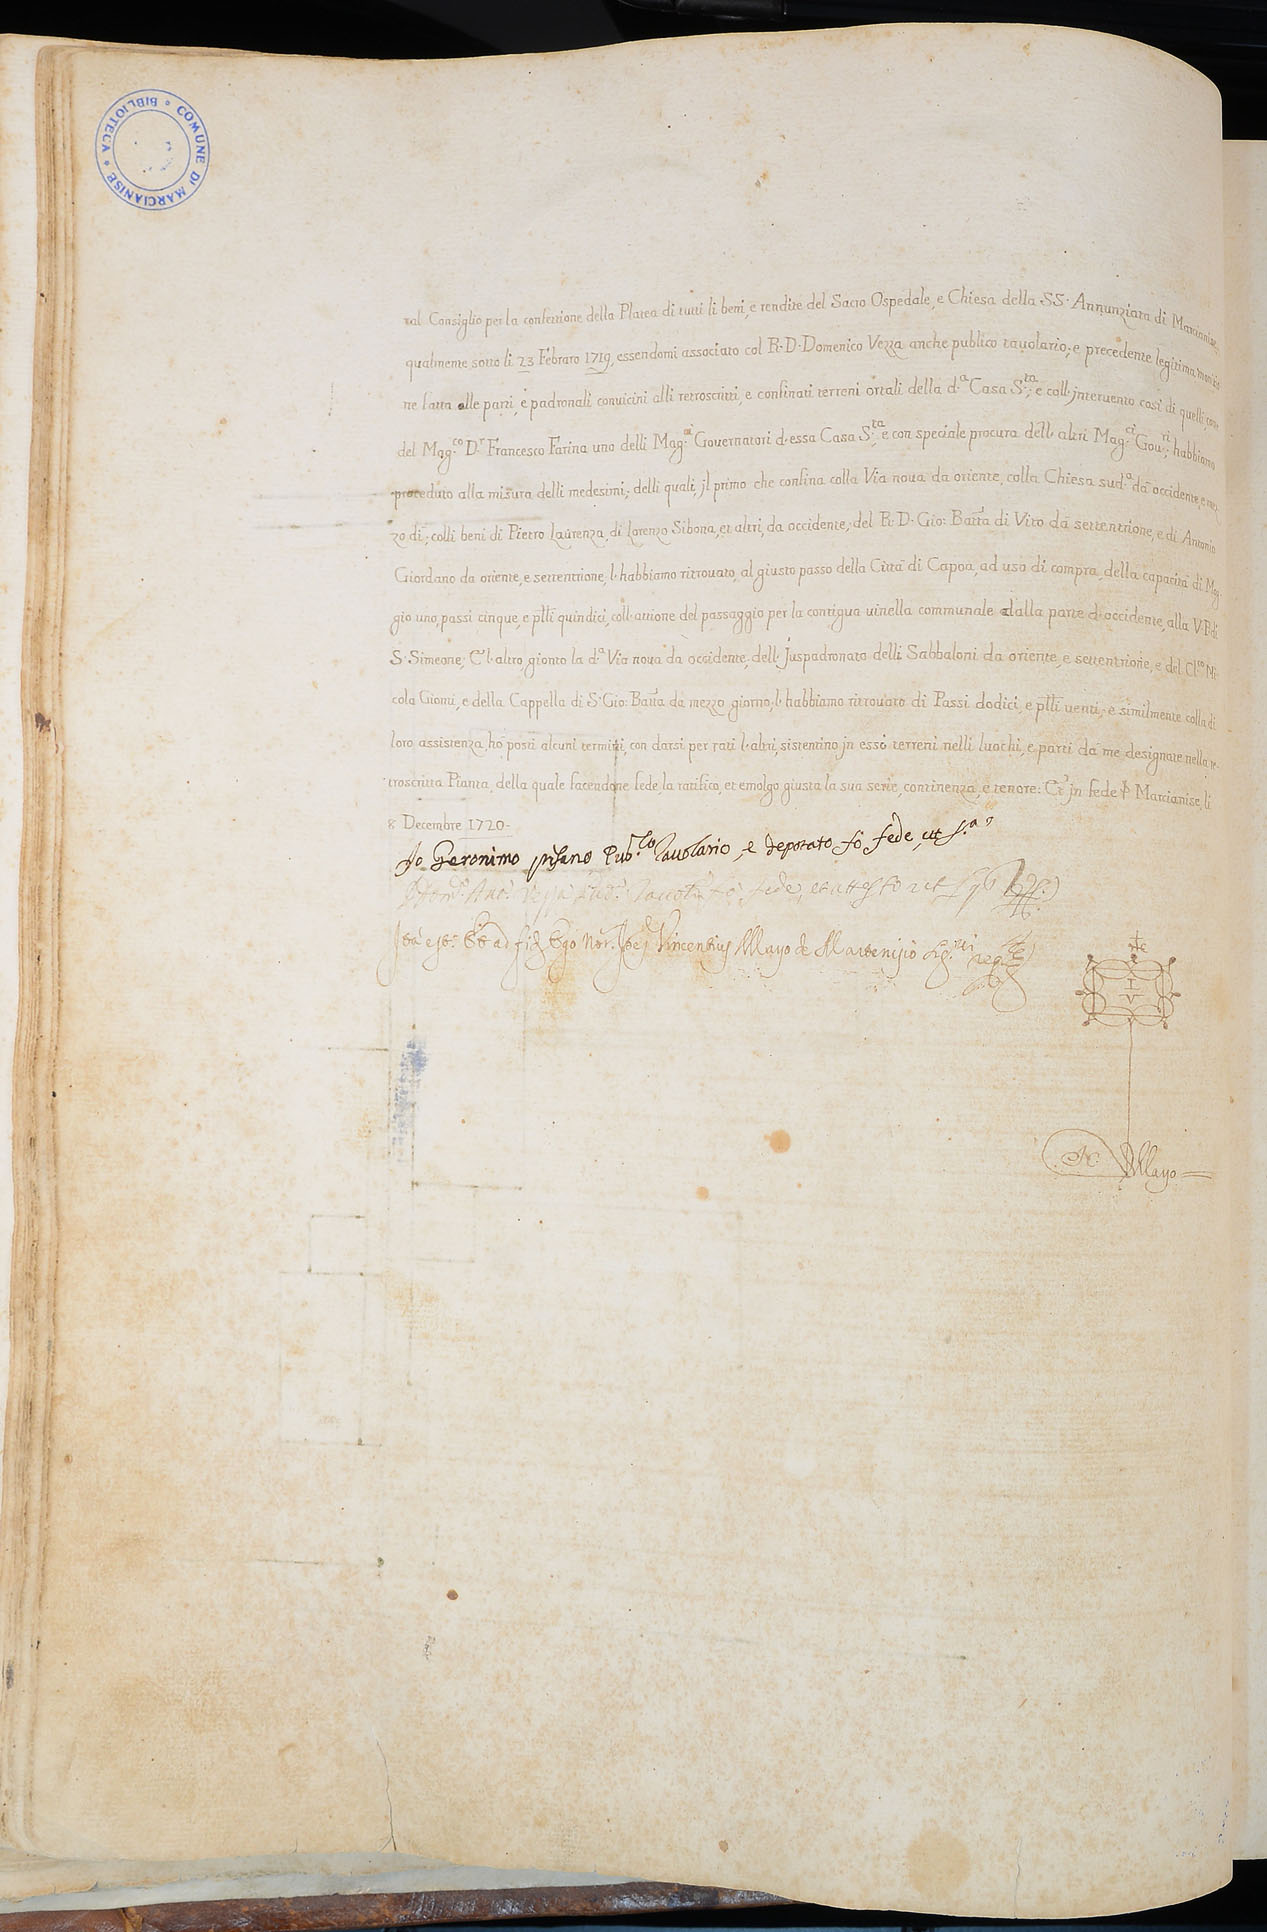 BIBLIOTECA * COMUNE DI MARCIANISE *
tal Consiglio per la confettione della Platea di tutti li beni, e rendite del Sacro Ospedale, e Chiesa della SS. Annunziata di Marcianise,
qualmente sotto li 23 Febraro 1719, essendomi associato col R. D. Domenico Vezza anche publico tauolario, e precedente legitima monitio
ne fatta alle parti, e padronali conuicini alli retroscritti, e confinati terreni ortali della d.ª Casa S.ta, e coll. jnteruento così di quelli, come
del Mag.co D.r Francesco Farina uno delli Mag.ci Gouernatori d. essa Casa S.ta, e con speciale procura dell. altri Mag.ci Gou.ri; habbiamo
proceduto alla misura delli medesimi; delli quali, jl primo che confina colla Via noua da oriente, colla Chiesa sud.ª da occidente, e mez
zo dì; colli beni di Pietro Laurenza, di Lorenzo Sibona, et altri, da occidente; del R. D. Gio: Batta di Vito da settentrione, e di Antonio
Giordano da oriente, e settentrione, l. habbiamo ritrouato, al giusto passo della Città di Capoa, ad uso di compra, della capacità di Mog
gio uno, passi cinque, e ptti quindici, coll. attione del passaggio per la contigua uinella communale dalla parte d. occidente, alla V. P. di
S. Simeone; E l. altro, gionto la d.ª Via noua da occidente, dell. Juspadronato delli Sabbaloni da oriente, e settentrione, e del Cl.co Ni
cola Giomi, e della Cappella di S. Gio: Batta da mezzo giorno; l. habbiamo ritrouato di Passi dodici, e ptti uenti; e similmente colla di
loro assistenza, hò posti alcuni termini, con darsi per rati l. altri, sistentino jn essi terreni nelli luochi, e parti da me designate nella re
troscritta Pianta, della quale facendone fede, la ratifico, et emolgo giusta la sua serie, continenza, e tenore: Et jn fede Marcianise, li
8 Decembre 1720.
Io Geronimo pisano Pub.co Tauolario, e deporato fò fede, ut s.ª
fò fede, et attesto ut
Ità est Et ad fid Ego Not. Vincentius Mayo de Marcenisio
I
V
Mayo